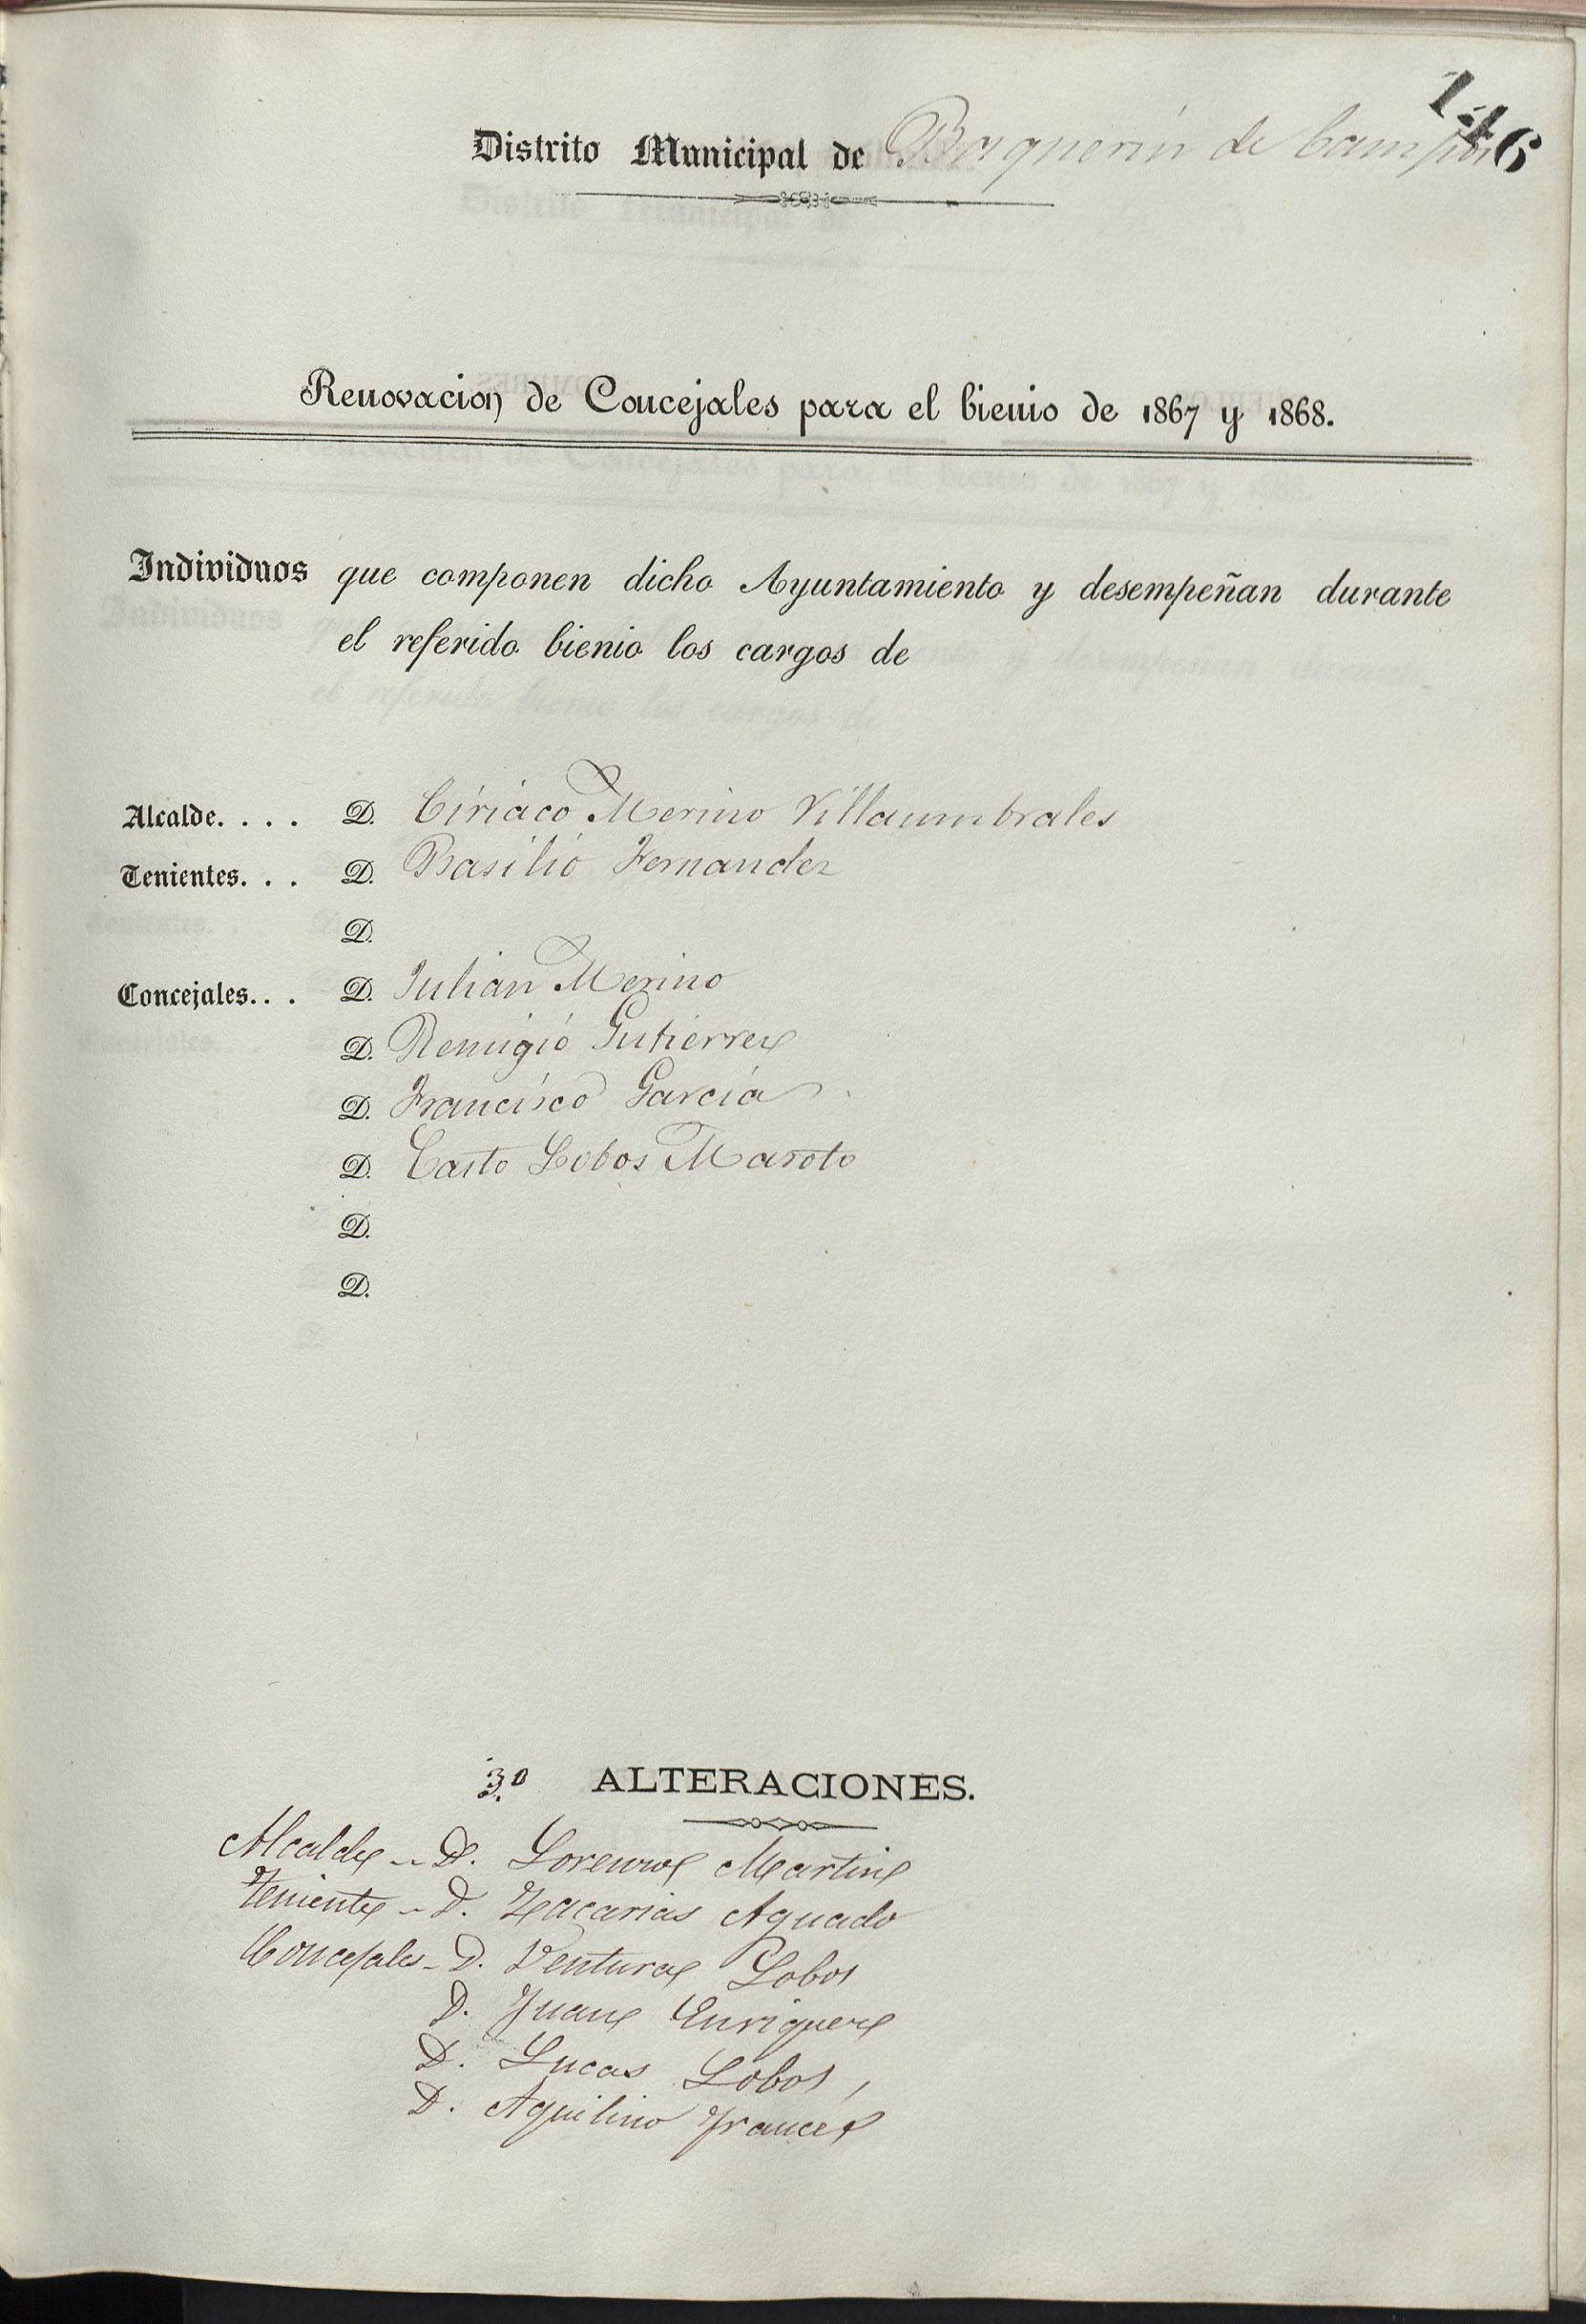 146
Distrito Municipal de Baquerin de Campos
Renovacion de Concejales para el bienio de 1867 y 1868.
Individuos que componen dicho Ayuntamiento y desempeñan durante
el referido bienio los cargos de
Alcalde. . . . D. Ciriaco Merino Villaumbrales
Tenientes. . . D. Basilio Fernandez
D.
Concejales. . . D. Julian Merino
D. Remigio Gutierrez
D. Francisco García
D. Casto Lobos Maroto
D.
D.
3.º ALTERACIONES.
Alcalde - D. Lorenzo Martin
Teniente - D. Zacarias Aguado
Concejales - D. Ventura Lobos
D. Juan Enriquez
D. Lucas Lobos,
D. Aquilino Francés